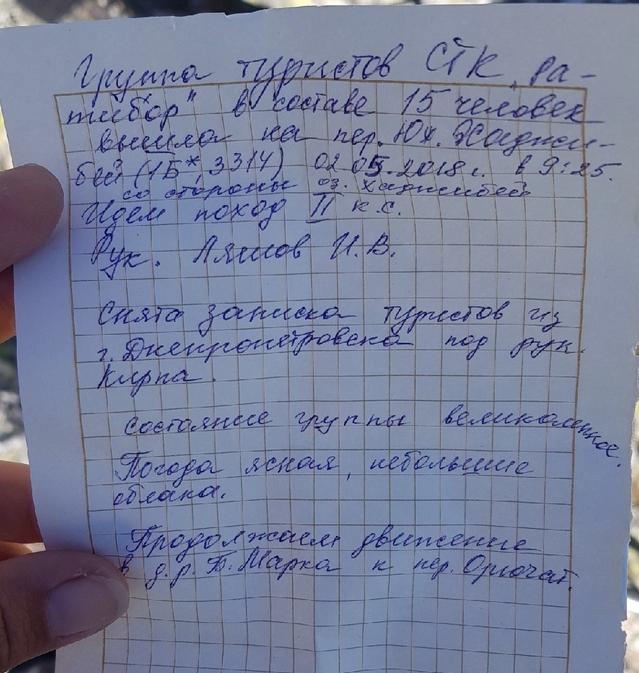 Группа туристов СТК „Ра-
тибор" в составе 15 человек
вышла на пер. Юж. Хаджи-
бей (1Б*, 3314) 02.05.2018 г. в 9:25.
со стороны оз. Хаджибей
Идём поход II к.с.
Рук. Ляшов И.В.
Снята записка туристов из
г. Днепропетровска под рук.
Кирпа.
Состояние группы великолепное.
Погода ясная, небольшие
облака.
Продолжаем движение
в д.р. Б. Марка к пер. Орючат.